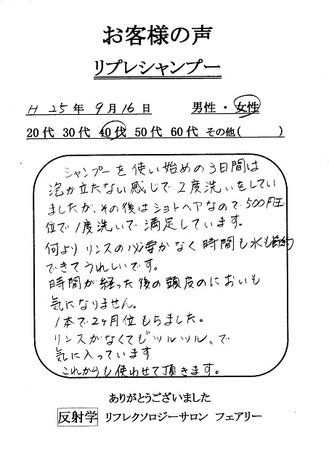 お客様の声
リプレシャンプー
H 25年 9月16日 男性・女性
20代 30代 40代 50代 60代 その他( )
シャンプーを使い始めの3日間は
泡が立たない感じで2度洗いをしてい
ましたが、その後はショートヘアなので500円玉
位で1度洗いで満足しています。
何よりリンスの必要がなく時間も水も節約
できてうれしいです。
時間が経った後の頭皮のにおいも
気になりません。
1本で2ヶ月位もちました。
リンスがなくても"ツルツル"で
気に入っています
これからも使わせて頂きます。
ありがとうございました
反射学 リフレクソロジーサロン フェアリー